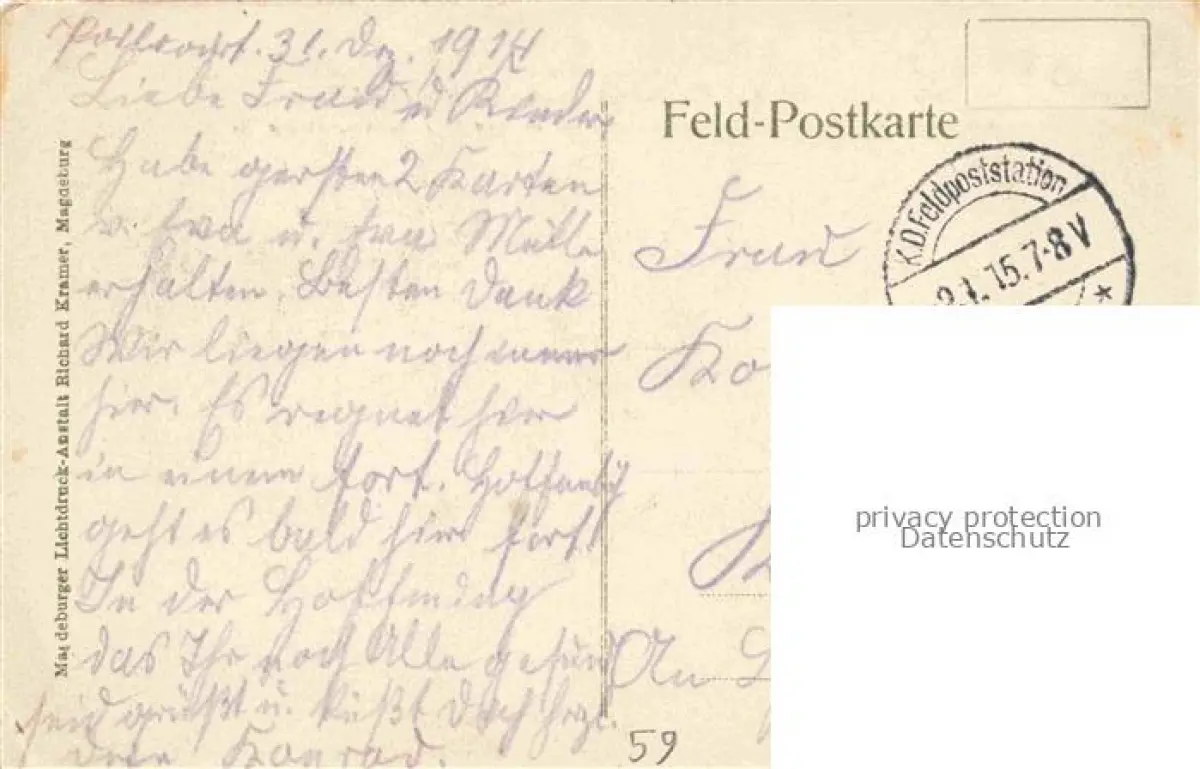 31. Dez. 1914
Liebe Frau u Kinder.
Habe gestern 2 Karten
v. Eva u. Frau Müller
erhalten. Besten Dank
Wir liegen noch immer
hier. Es regnet hier
in einem fort. Hoffentlich
geht es bald hier fort
In der Hoffnung
das Ihr noch Alle gesund
seid grüßt u. küßt Dich herzl.
dein Konrad.
Magdeburger Lichtdruck-Anstalt Richard Kramer, Magdeburg
Feld-Postkarte
K.D. Feldpoststation
2.1.15. 7-8 V
*
Frau
Ko
An
59
privacy protection
Datenschutz